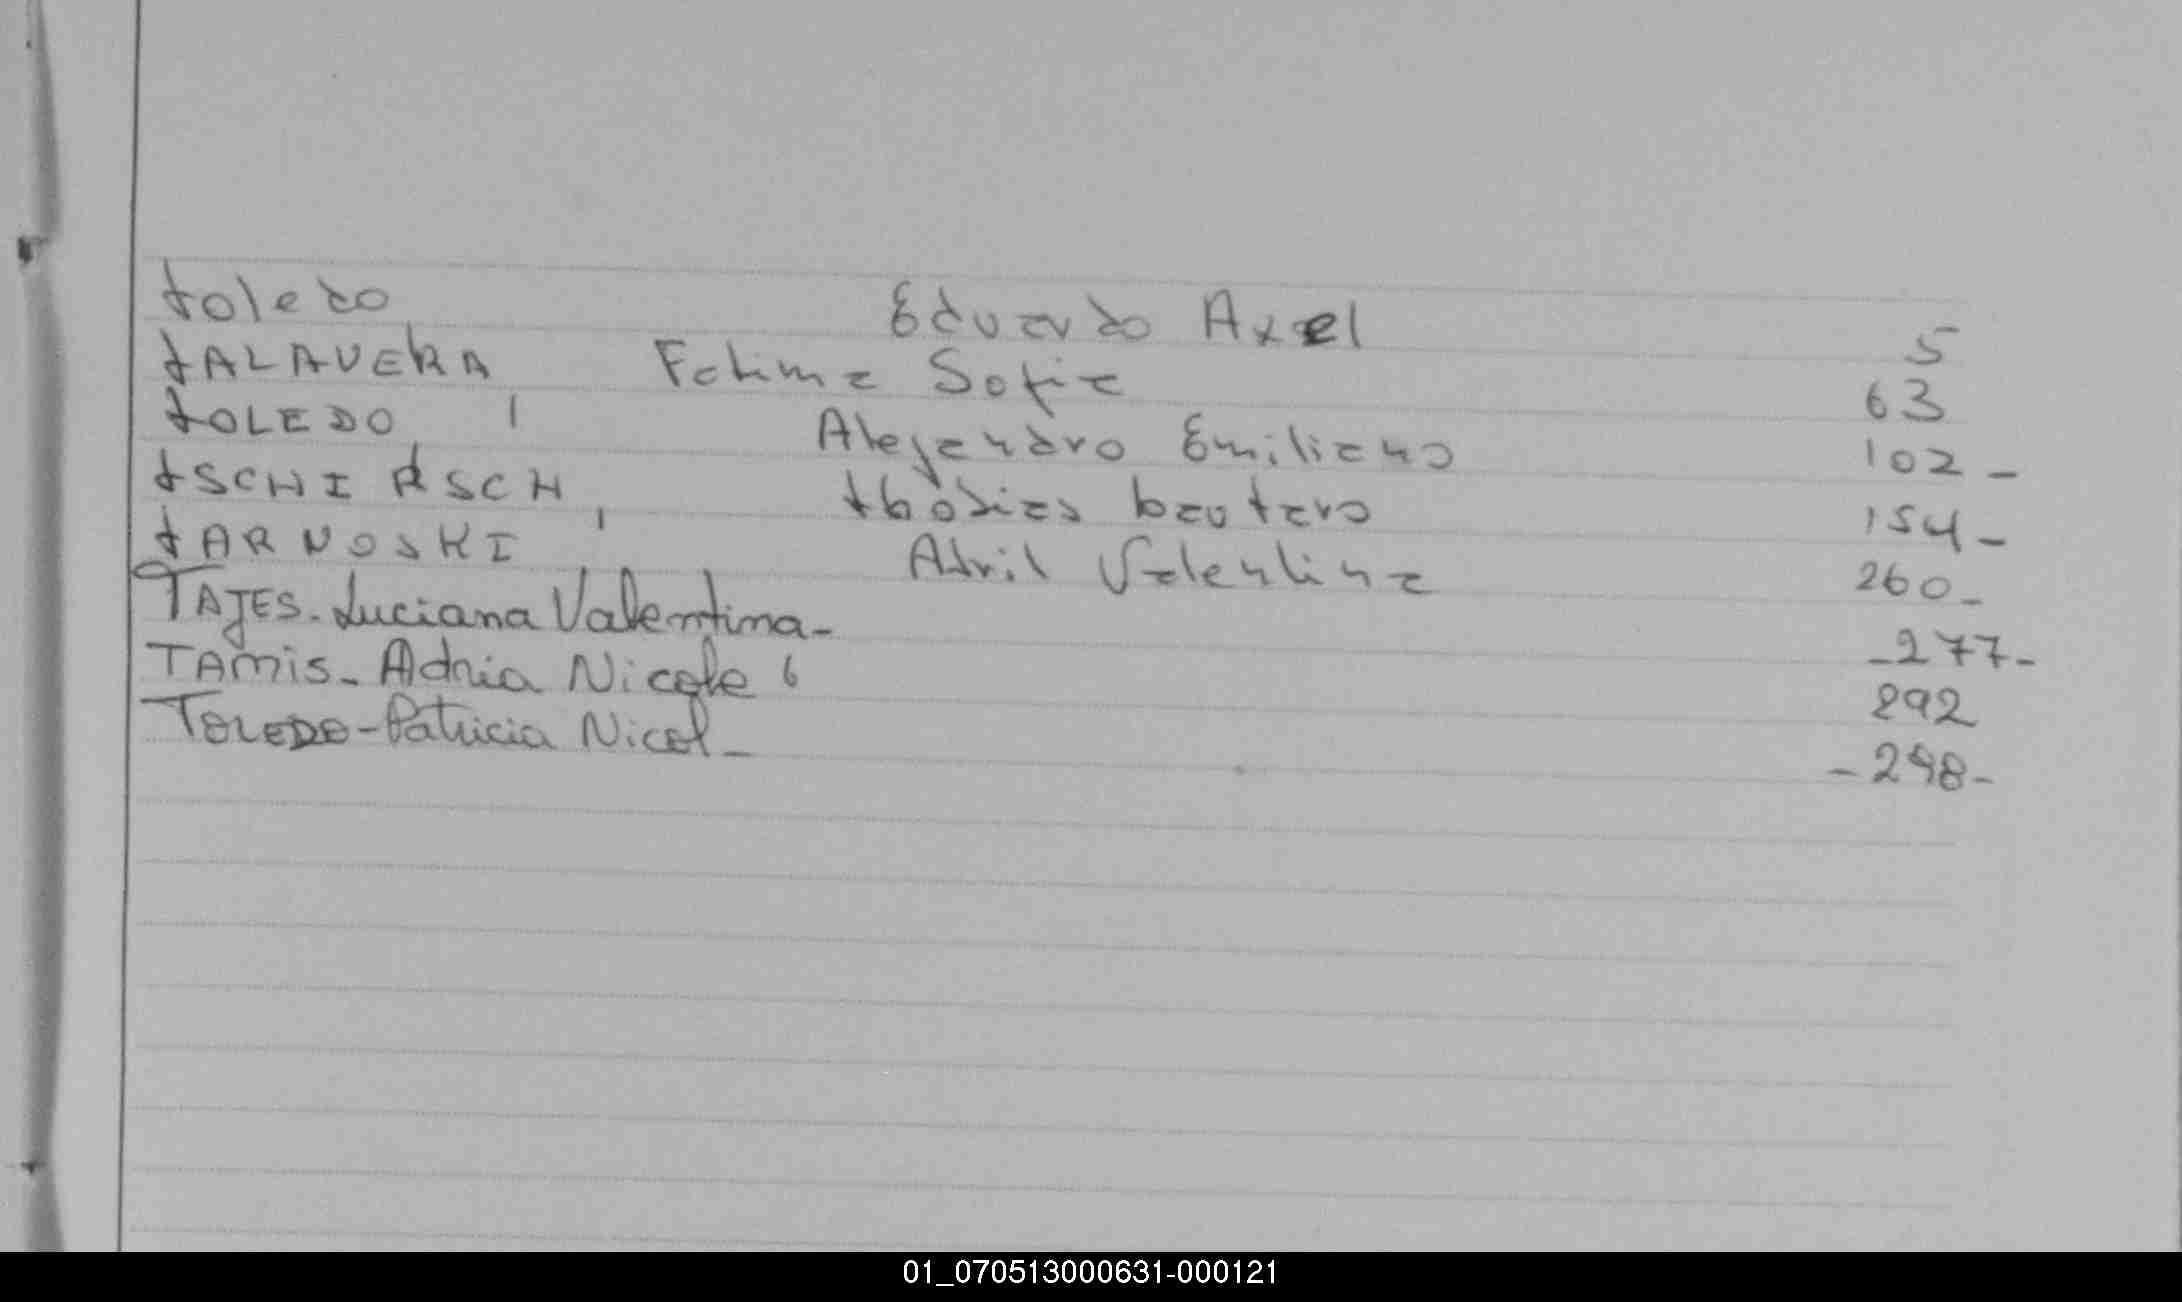 Toledo Eduardo Axel 5
TALAVERA Fatima Sofia 63
TOLEDO, Alejandro Emiliano 102-
TSCHIRSCH, Lautaro 154-
TARNOSKI, Abril Valentina 260-
TAJES. Luciana Valentina- -277-
TAMIS- Adria Nicole 292
TOLEDO-Patricia Nicol- -298-
01_070513000631-000121